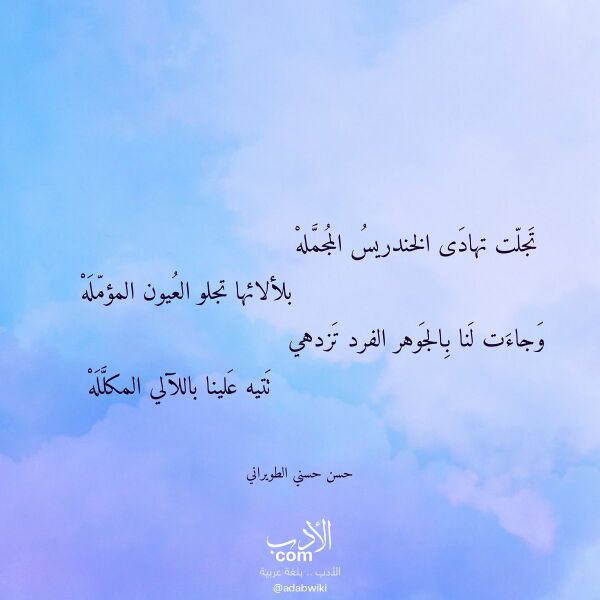 تَجلّت تهادَى الخندريسُ المُجمَّلهْ
بلألائها تجلو العُيون المؤمّلَهْ
وَجاءَت لَنا بِالجَوهر الفرد تَزدهي
تَتيه عَلينا باللآلي المكلَّلَهْ
حسن حسني الطويراني
الأدب
com
الأدب .. بلغة عربية
@adabwiki